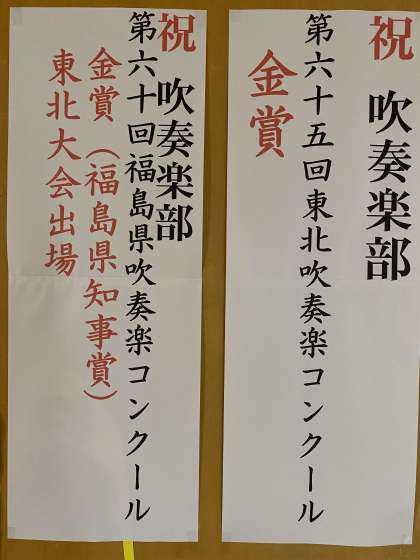 祝 吹奏楽部
第六十五回東北吹奏楽コンクール
金賞
祝 吹奏楽部
第六十回福島県吹奏楽コンクール
金賞（福島県知事賞）
東北大会出場